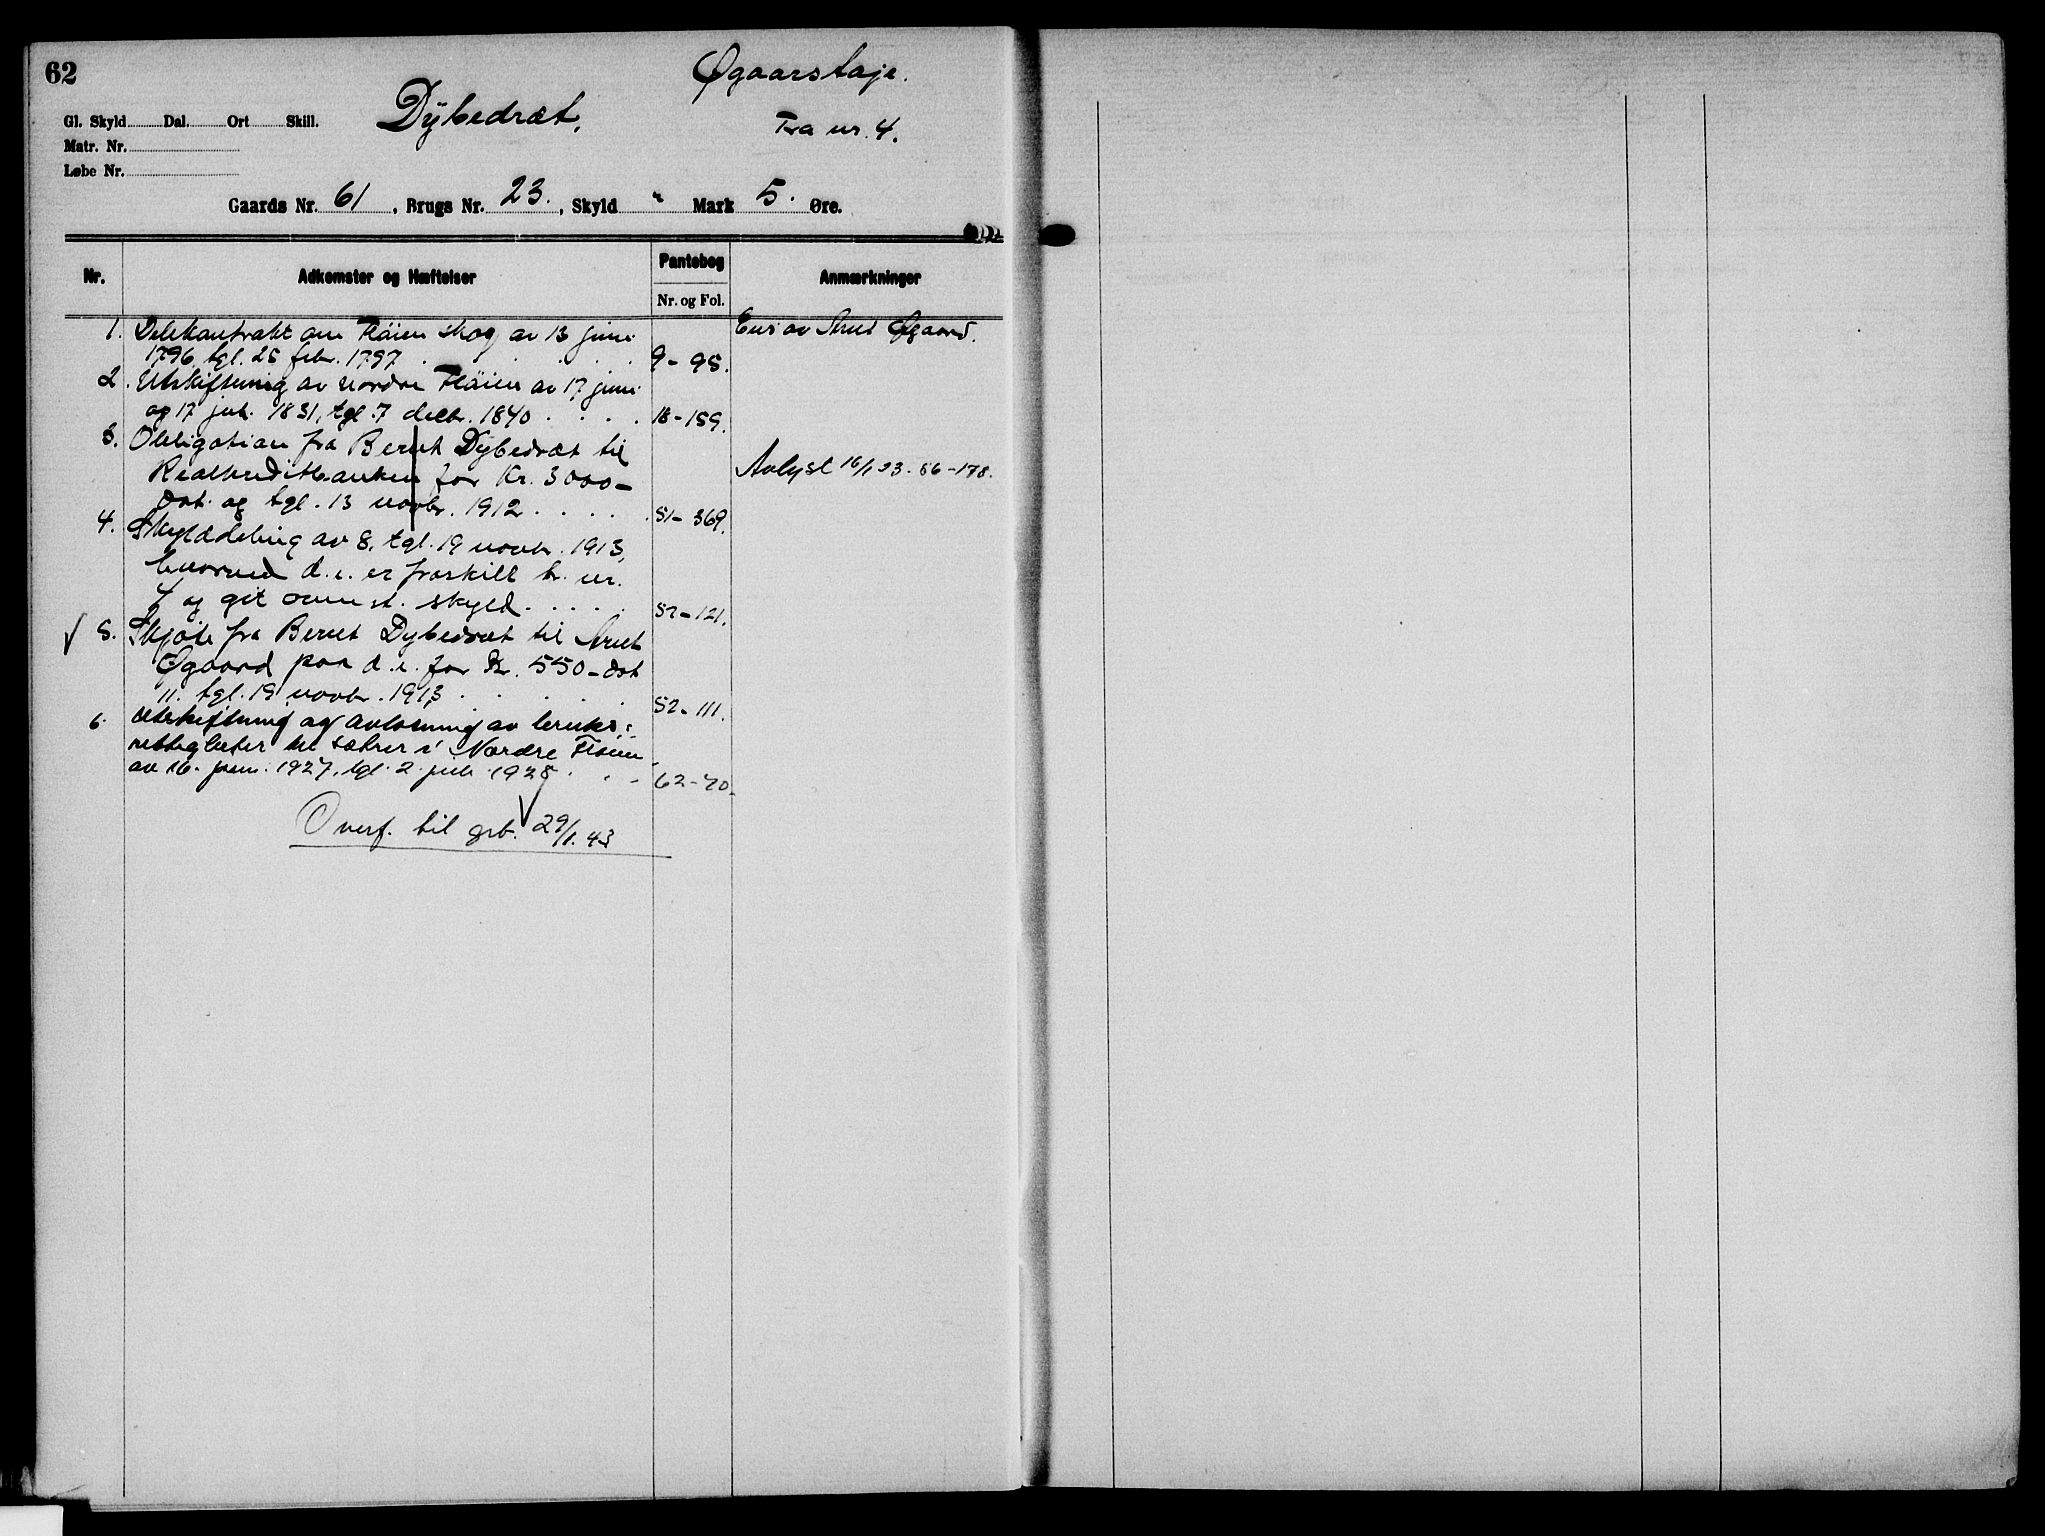 62
Øgaarstaje.
Gl. Skyld Dal. Ort Skill. Dybedræt.
Fra nr. 4.
Matr. Nr.
Løbe Nr.
Gaards Nr. 61, Brugs Nr. 23., Skyld " Mark 5. Øre.
Nr. Adkomster og Hæftelser Pantebog Anmærkninger
Nr. og Fol.
1. Delekontrakt om Fläien skog av 13 juni Eies av Arnt Øgaard.
1796, tgl. 25 febr. 1797 . . . . 9 - 95.
2. Utskiftning av nordre Fläien av 17 juni
og 17 juli 1831, tgl. 7 decbr. 1840 . . . . 18 - 159.
3. Obligation fra Bernt Dybedræt til
Realkreditbanken for Kr. 3000 - Avlyst 16/1 23. 56 - 178.
dat. og tgl. 13 novbr. 1912 . . . . 51 - 369.
4. Skylddeling av 8, tgl. 19 novbr. 1913,
hvorved d. e. er fraskilt br. nr.
4 og git ovenst. skyld . . . . 52 - 121.
5. Skjøte fra Bernt Dybedræt til Arnt
Øgaard paa d. e. for Kr. 550 - dat
11. tgl. 19 novbr. 1913 . . . . 52 - 111.
6. Utskiftning og avløsning av bruks-
rettigheter til sætrer i Nordre Fløien
av 16. juni 1927, tgl. 2. juli 1928 . . 62 - 70.
Overf. til grb. 29/1. 43